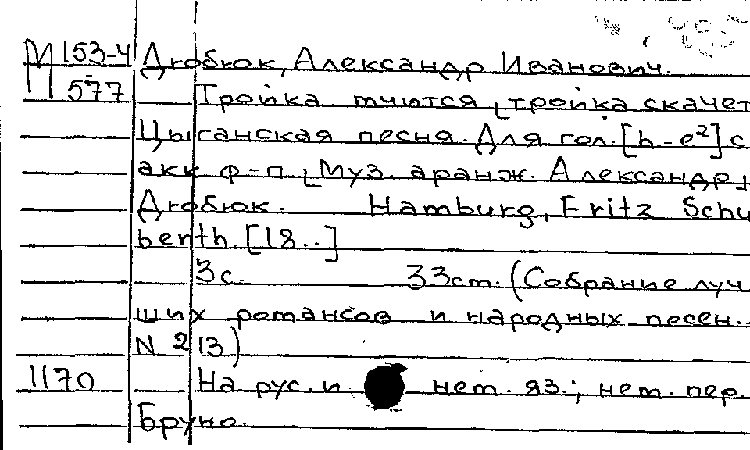 М 153-4 Дюбюк, Александр Иванович.
577 Тройка мчится, тройка скачет
Цыганская песня. Для гол. [h-e²] с
акк ф-п. Муз. аранж. Александр
Дюбюк. Hamburg, Fritz Schu
berth. [18..]
3с. 33см. (Собрание луч
ших романсов и народных песен.
N 213)
1170 На рус. и нем. яз.; нем. пер.
Бруно.